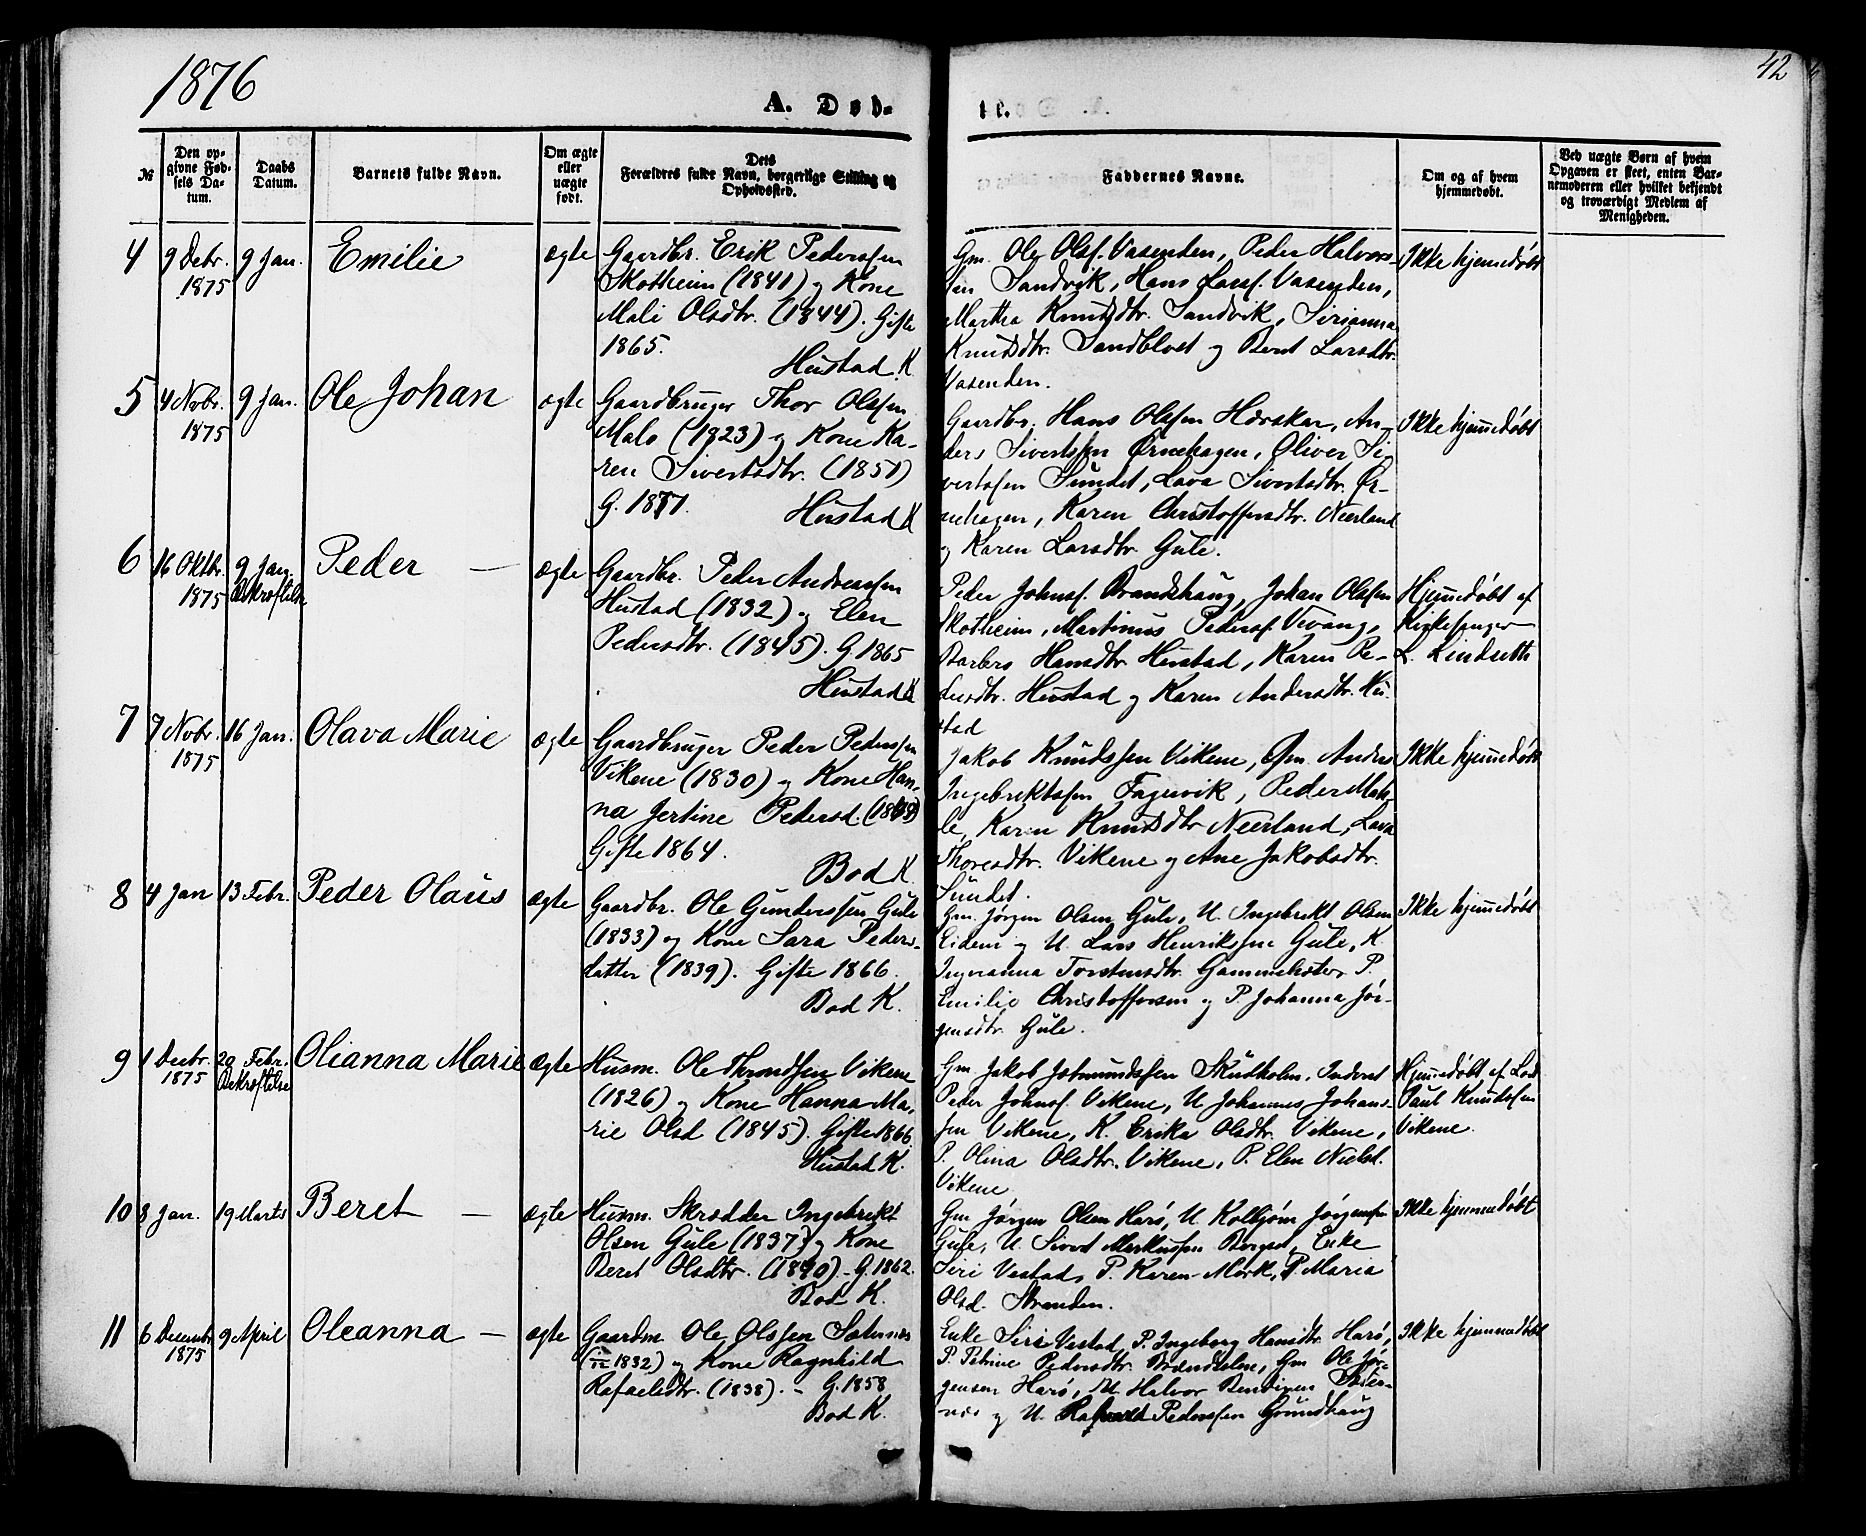 1876
42
A. Døb-
te.
№
Den op-
givne Fød-
sels Da-
tum.
Daabs
Datum.
Barnets fulde Navn.
Om ægte
eller
uægte
født.
Dets
Forældres fulde Navn, borgerlige Stilling og
Opholdssted.
Faddernes Navne.
Om og af hvem
hjemmedøbt.
Ved uægte Børn af hvem
Opgaven er skeet, enten Bar-
nemoderen eller hvilket bekjendt
og troværdigt Medlem af
Menigheden.
4
9 Debr.
1875
9 Jan.
Emilie
ægte
Gaardbr. Erik Pederssen
Skotheim (1841) og Kone
Mali Olsdtr. (1844). Gifte
1865.
Hustad K.
Gm. Ole Olss. Vasenden, Peder Halvors-
sen Sandvik, Hans Larss. Vasenden,
Martha Knudsdtr. Sandvik, Sirianna
Knudsdtr. Sandblost og Beret Larsdtr.
Vasenden.
Ikke hjemmedøbt
5
4 Novbr.
1875
9 Jan.
Ole Johan
ægte
Gaardbruger Thor Olssen
Malo (1823) og Kone Ka-
ren Sivertsdtr. (1851)
G. 1871.
Hustad K
Gaardbr. Hans Olssen Hærskar, An-
ders Sivertssen Ørnehagen, Oliver Si-
vertssen Sundet, Lava Sivertsdtr. Ør-
nehagen, Karen Christoffersdtr. Neerland
og Karen Larsdtr. Gule.
Ikke hjemmedøbt
6
16 Oktbr.
1875
9 Jan.
Bekræftelse
Peder —
ægte
Gaardbr. Peder Andreassen
Hustad (1832) og Elen
Pedersdtr. (1845). G. 1865
Hustad K
Peder Johnss. Brandshaug, Johan Olssen
Skotheim, Martinus Pederss. Vevang,
Barbro Hansdtr. Hustad, Karen Pe-
dersdtr. Hustad og Karen Andersdtr. Hu-
stad
Hjemmedøbt af
Kirkesanger
L. Lindseth
7
7 Novbr.
1875
16 Jan.
Olava Marie
ægte
Gaardbruger Peder Pederssen
Vikene (1830) og Kone Han-
na Jertine Pedersd.
Gifte 1864.
Bod K.
Jakob Knudssen Vikene, Gm. Anders
Ingebrektssen Fagervik, Peder Mah-
le, Karen Knudsdtr Neerland, Lava
Thoresdtr. Vikene og Ane Jakobsdtr.
Sundet.
Ikke hjemmedøbt
8
4 Jan
13 Febr.
Peder Olaus
ægte
Gaardbr. Ole Gunderssen Gule
(1833) og Kone Sara Peders-
datter (1839). Gifte 1866.
Bod K.
Gm. Jørgen Olsen Gule, U. Ingebrikt Olsen
Eidem og U. Lars Henrikssen Gule, K.
Ingeranna Torstensdtr. P.
Emilie Christoffersen og P. Johanna Jør-
gensdtr. Gule.
Ikke hjemmedøbt
9
1 Decbr.
1875
20 Febr.
Bekræftelse
Olianna Marie
ægte
Husm. Ole Throndssen Vikene
(1826) og Kone Hanna Ma-
rie Olsd (1845). Gifte 1866.
Hustad K.
Gm. Jakob Skudholm, Inderst
Peder Johnss. Vikene, U. Johannes Johans-
sen Vikene, K. Erika Olsdtr. Vikene,
P. Olina Olsdtr. Vikene, P. Elen Nielsd.
Vikene
Hjemmedøbt af
Paul Knudssen
Vikene.
10
8 Jan.
19 Marts
Beret —
ægte
Husm. Skrædder Ingebrikt
Olsen Gule (1837) og Kone
Beret Olsdtr. (1840) - G. 1862.
Bod K.
Gm Jørgen Olsen Harø, U. Kolbjørn Jørgensen
Gule, U. Sivert Markussen Berget, Enke
Siri Vestad, P. Karen Mork, P. Maria
Olsd. Stranden.
Ikke hjemmedøbt
11
6 Decembr
1875
9 April
Oleanna —
ægte
Gaardm Ole Olssen
1832) og Kone Ragnhild
Rafaelsdtr. (1838). - G. 1858
Bod K.
Enke Siri Vestad, P. Ingeborg Hansdtr. Harø,
P. Petrine Pedersdtr. Gm Ole Jør-
gensen Harø, U. Halvor
nes og U. Pederssen Grundhaug
Ikke hjemmedøbt